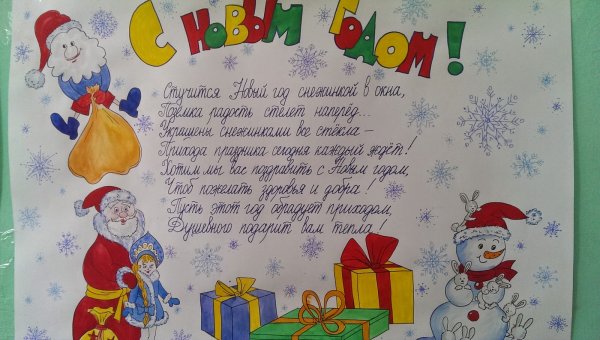 С Новым Годом!
Стучится Новый год снежинкой в окна,
Позёмка радость стелет наперёд...
Украшены снежинками все стёкла –
Прихода праздника сегодня каждый ждёт!
Хотим мы вас поздравить с Новым годом,
Чтоб пожелать здоровья и добра!
Пусть этот год обрадует приходом,
Душевного подарит вам тепла!